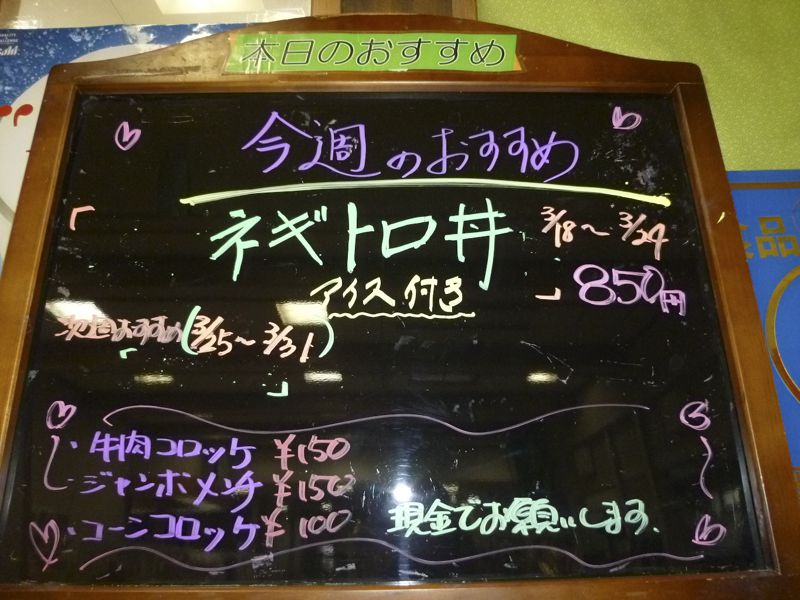 本日のおすすめ
今週のおすすめ
「ネギトロ丼 3/18～3/24
アイス付き 」850円
次週おすすめ(3/25～3/31)
「 」
・牛肉コロッケ ¥150
・ジャンボメンチ ¥150
・コーンコロッケ ¥100
現金でお願いします.
品